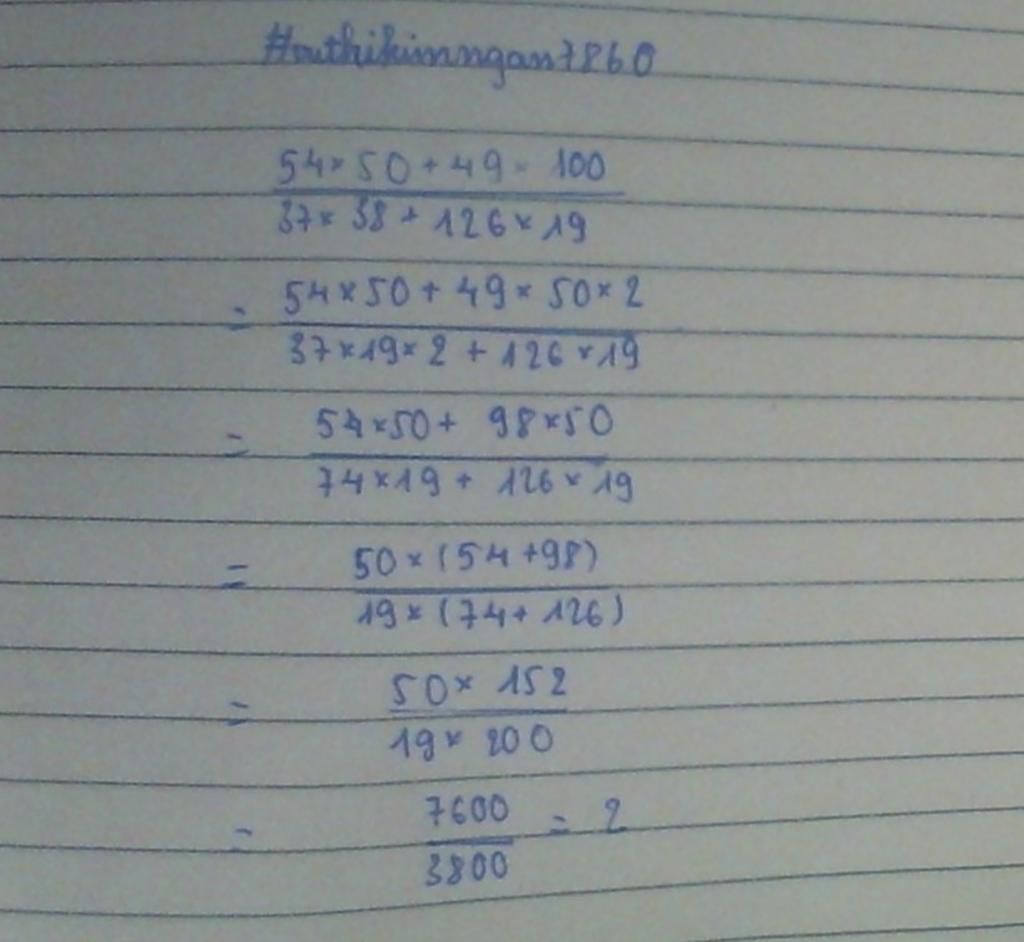 #muthikimngan7860
54×50 + 49 × 100
37 × 38 + 126 × 19
= 54×50 + 49 × 50 × 2
37 ×19× 2 + 126 ×19
= 54×50 + 98×50
74×19 + 126 × 19
= 50 × (54 +98)
19 × (74+ 126)
= 50× 152
19× 200
= 7600 = 2
3800